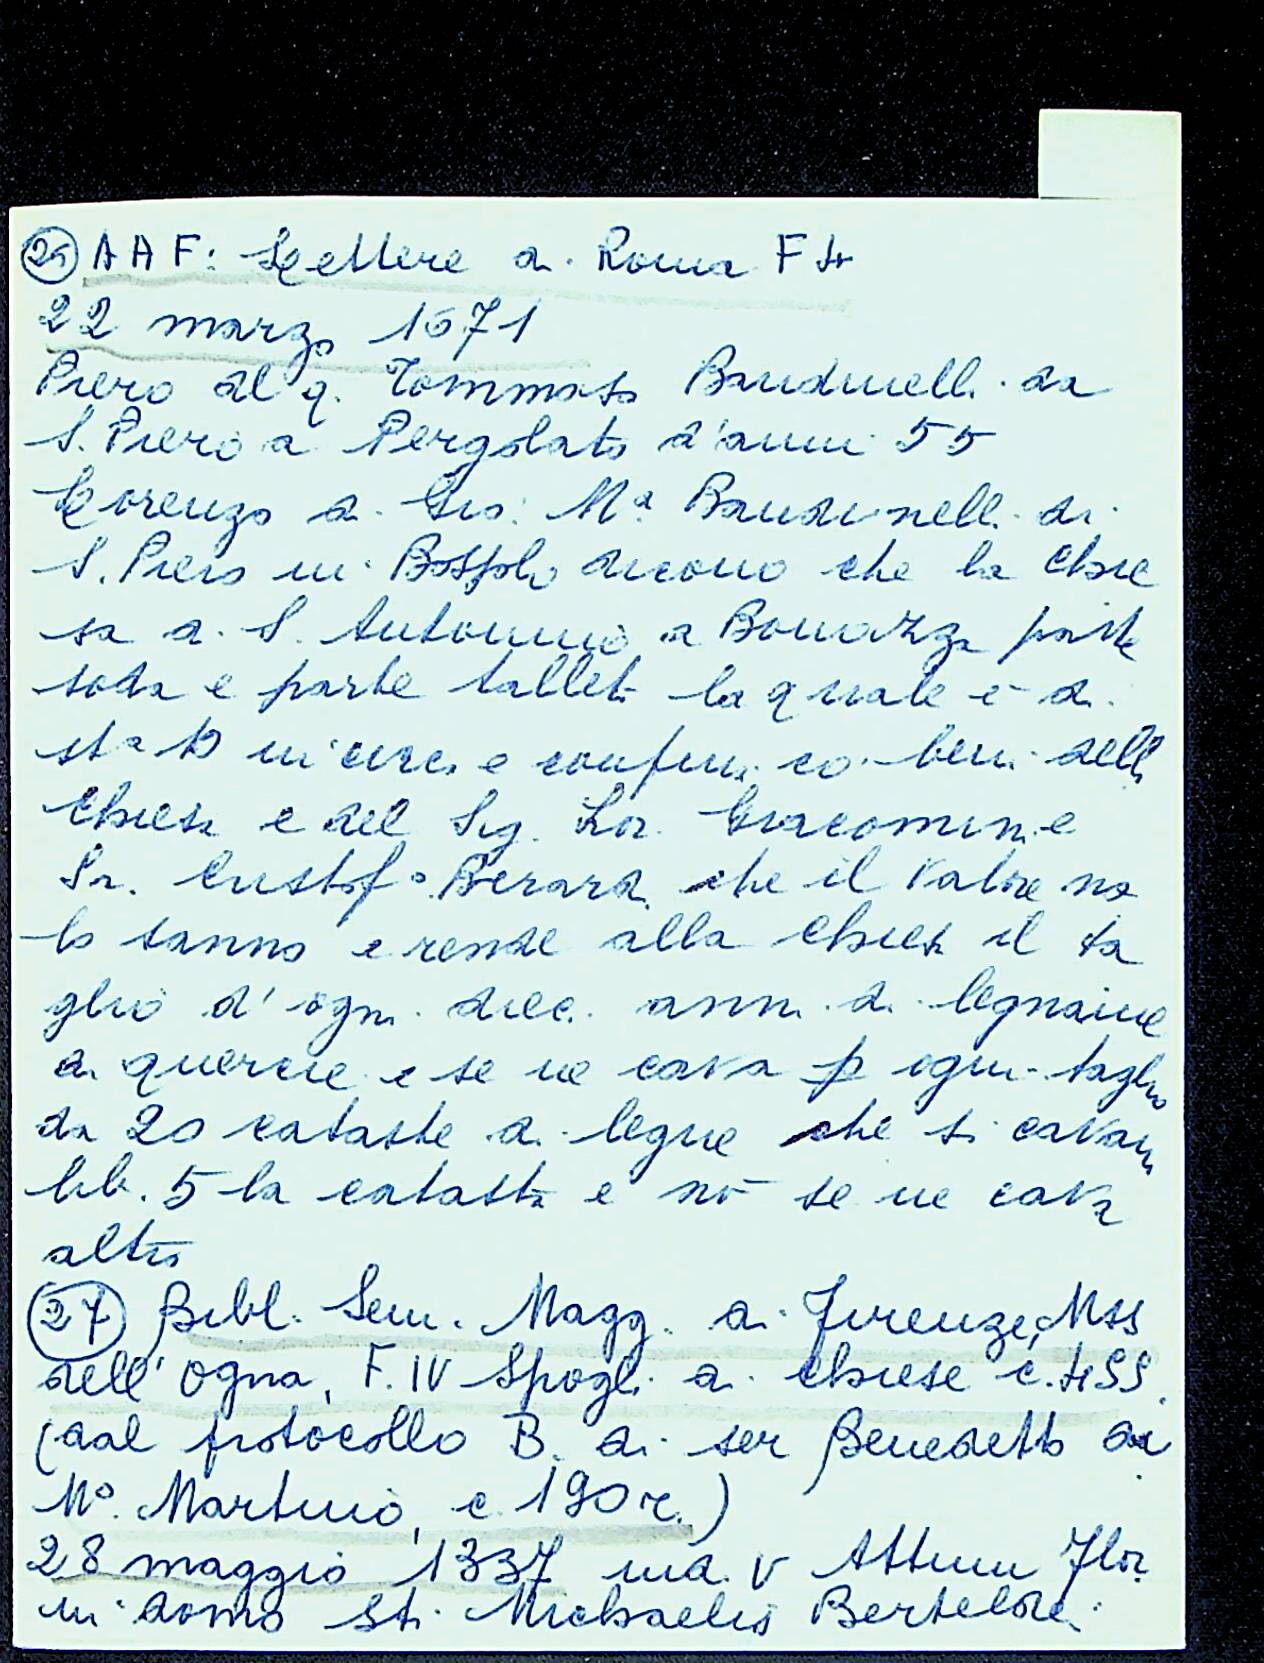 AAF: Lettere a. Roma F
22 marzo 1671
Piero del q. Tommaso Bandinelli da
S. Piero a Pergolato d'anni 55
Lorenzo di Gio: Mª Bandinelli di
S. Piero in Bossolo dicono che la chie
sa di S. Antonino a Bonazza parte
soda e parte tallet la quale è di
stato in circa e confini co. beni della
chiesa e del Sig. Lor. Giacomini e
Sr. Cristofº. Berardi che il valore no
lo sanno e rende alla chiesa il ta
glio d'ogni dieci anni di legname
di quercie e se ne cava p ogni taglio
da 20 cataste di legne che si cavan
lib. 5 la catasta e nō se ne cava
altro
(27) Bibl. Sem. Magg. di Firenze, Mss
dell'Ogna, F. IV Spogli di chiese c.
(dal protocollo B. di ser Benedetto di
Mº. Martino, c. 190 r.)
28 maggio 1337 ind. V Attum Flor.
in domo Sti Michaelis Bertelde.